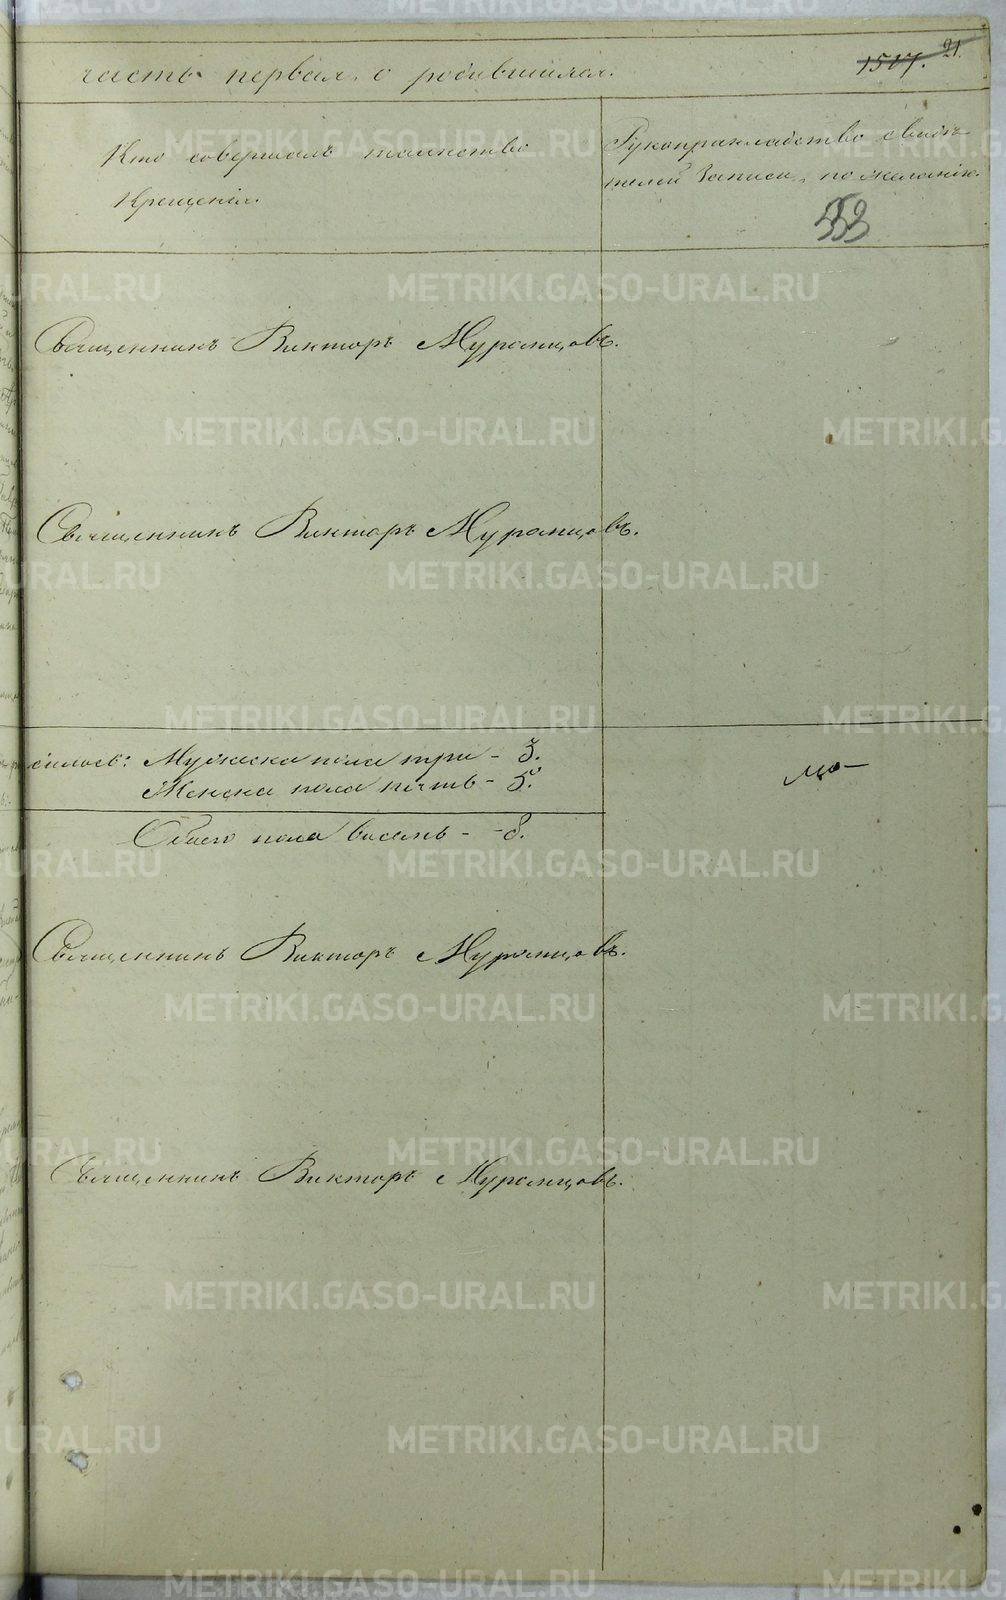 часть первая, о родившихся.
1517. 21.
Кто совершалъ таинство
Крещенія.
Рукоприкладство свидѣ-
телей записи, по желанію.
553
Священникъ Викторъ Муромцовъ.
Священникъ Викторъ Муромцовъ.
Мужеска пола три - 3.
Женска пола пять - 5.
Обоего пола восемь - - 8.
Священникъ Викторъ Муромцовъ.
Священникъ Викторъ Муромцовъ.
METRIKI.GASO-URAL.RU